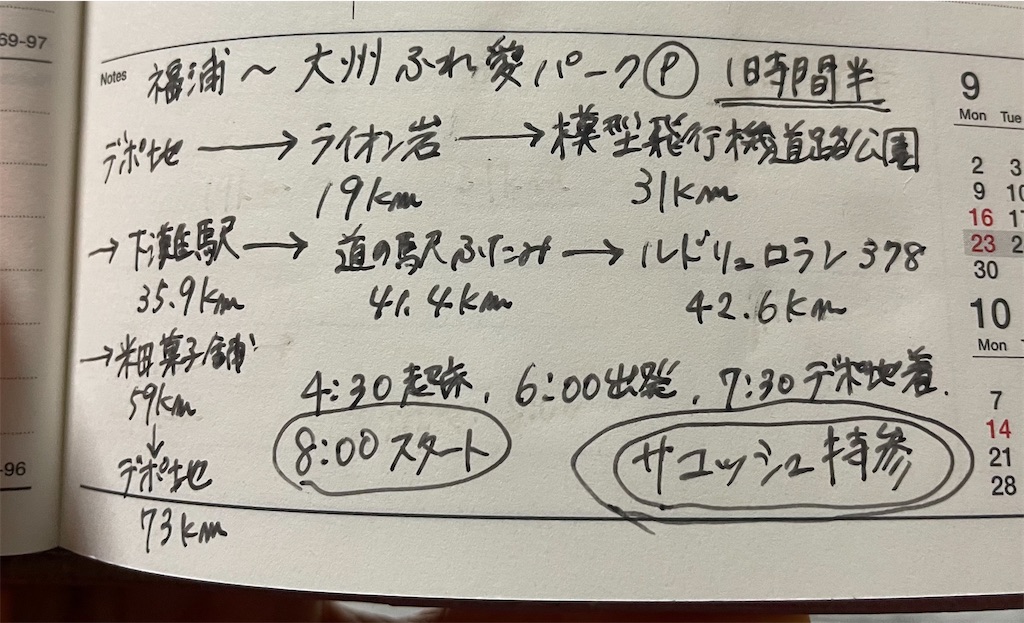 69-97
Notes 福浦～大州ふれ愛パークⓅ 1時間半
デポ地→ライオン岩→模型飛行機道路公園
19km 31km
→下灘駅→道の駅ふたみ→ルドリュロラン378
35.9km 41.4km 42.6km
→米田菓子舗
59km
↓
デポ地
73km
4:30起床、6:00出発、7:30デポ地着.
8:00スタート サコッシュ持参
-96
9
Mon Tue
2 3
9 10
16 17
23 2
30
10
Mon
7
14
21
28